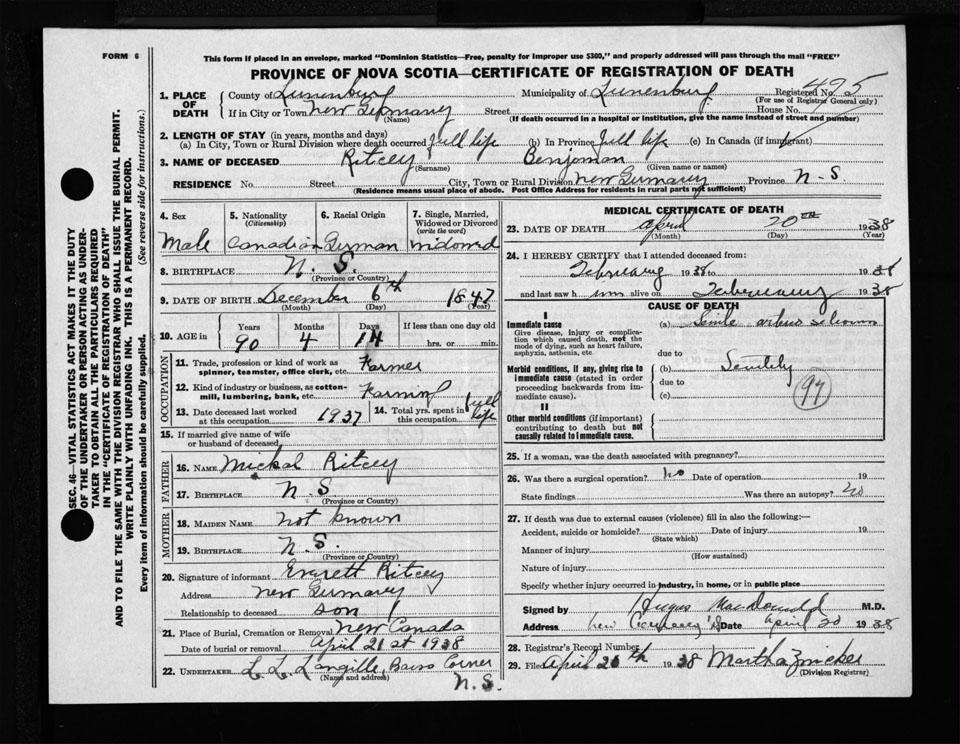 FORM 6
This form if placed in an envelope, marked "Dominion Statistics—Free, penalty for improper use $300," and properly addressed will pass through the mail "FREE"
PROVINCE OF NOVA SCOTIA—CERTIFICATE OF REGISTRATION OF DEATH
1. PLACE OF DEATH County of Lunenburg Municipality of Lunenburg Registered No. 495
(For use of Registrar General only)
If in City or Town New Germany Street House No.
(Name) (If death occurred in a hospital or institution, give the name instead of street and number)
2. LENGTH OF STAY (in years, months and days)
(a) In City, Town or Rural Division where death occurred full life (b) In Province full life (c) In Canada (if immigrant)
3. NAME OF DECEASED Ritcey Benjoman
(Surname) (Given name or names)
RESIDENCE No. Street City, Town or Rural Division New Germany Province N-S.
(Residence means usual place of abode. Post Office Address for residents in rural parts not sufficient)
4. Sex 5. Nationality (Citizenship) 6. Racial Origin 7. Single, Married, Widowed or Divorced (write the word)
Male Canadian German Widowed
8. BIRTHPLACE N. S.
(Province or Country)
9. DATE OF BIRTH December 6th 1847
(Month) (Day) (Year)
10. AGE in Years Months Days If less than one day old
90 4 14 hrs. or min.
OCCUPATION
11. Trade, profession or kind of work as spinner, teamster, office clerk, etc. Farmer
12. Kind of industry or business, as cotton-mill, lumbering, bank, etc. Farming
13. Date deceased last worked at this occupation 1937 14. Total yrs. spent in this occupation full life
15. If married give name of wife or husband of deceased
FATHER
16. NAME Mickal Ritcey
17. BIRTHPLACE N. S
(Province or Country)
MOTHER
18. MAIDEN NAME not known
19. BIRTHPLACE N. S.
(Province or Country)
20. Signature of informant Everett Ritcey
Address New Germany
Relationship to deceased son
21. Place of Burial, Cremation or Removal New Canada
Date of burial or removal April 21 st 1938
22. UNDERTAKER L. L. Langille, Corner
(Name and address) N. S.
MEDICAL CERTIFICATE OF DEATH
23. DATE OF DEATH April 20TH 1938
(Month) (Day) (Year)
24. I HEREBY CERTIFY that I attended deceased from:
February 1938 to 1938
and last saw him alive on February 1938
CAUSE OF DEATH
I
Immediate cause (a) Senile
Give disease, injury or complication which caused death, not the mode of dying, such as heart failure, asphyxia, asthenia, etc due to
Morbid conditions, if any, giving rise to immediate cause (stated in order proceeding backwards from immediate cause). (b) Senility
due to
(c)
97
II
Other morbid conditions (if important) contributing to death but not causally related to immediate cause.
25. If a woman, was the death associated with pregnancy?
26. Was there a surgical operation? No Date of operation 19
State findings Was there an autopsy? No
27. If death was due to external causes (violence) fill in also the following:—
Accident, suicide or homicide? Date of injury 19
(State which)
Manner of injury
(How sustained)
Nature of injury
Specify whether injury occurred in industry, in home, or in public place
Signed by Angus MacDonald M.D.
Address New Germany NS Date April 20 1938
28. Registrar's Record Number
29. Filed April 20th 1938 Martha Zwicker
(Division Registrar)
SEC. 46—VITAL STATISTICS ACT MAKES IT THE DUTY
OF THE UNDERTAKER OR PERSON ACTING AS UNDER-
TAKER TO OBTAIN ALL THE PARTICULARS REQUIRED
IN THE "CERTIFICATE OF REGISTRATION OF DEATH"
AND TO FILE THE SAME WITH THE DIVISION REGISTRAR WHO SHALL ISSUE THE BURIAL PERMIT.
WRITE PLAINLY WITH UNFADING INK. THIS IS A PERMANENT RECORD.
Every item of information should be carefully supplied. (See reverse side for instructions.)